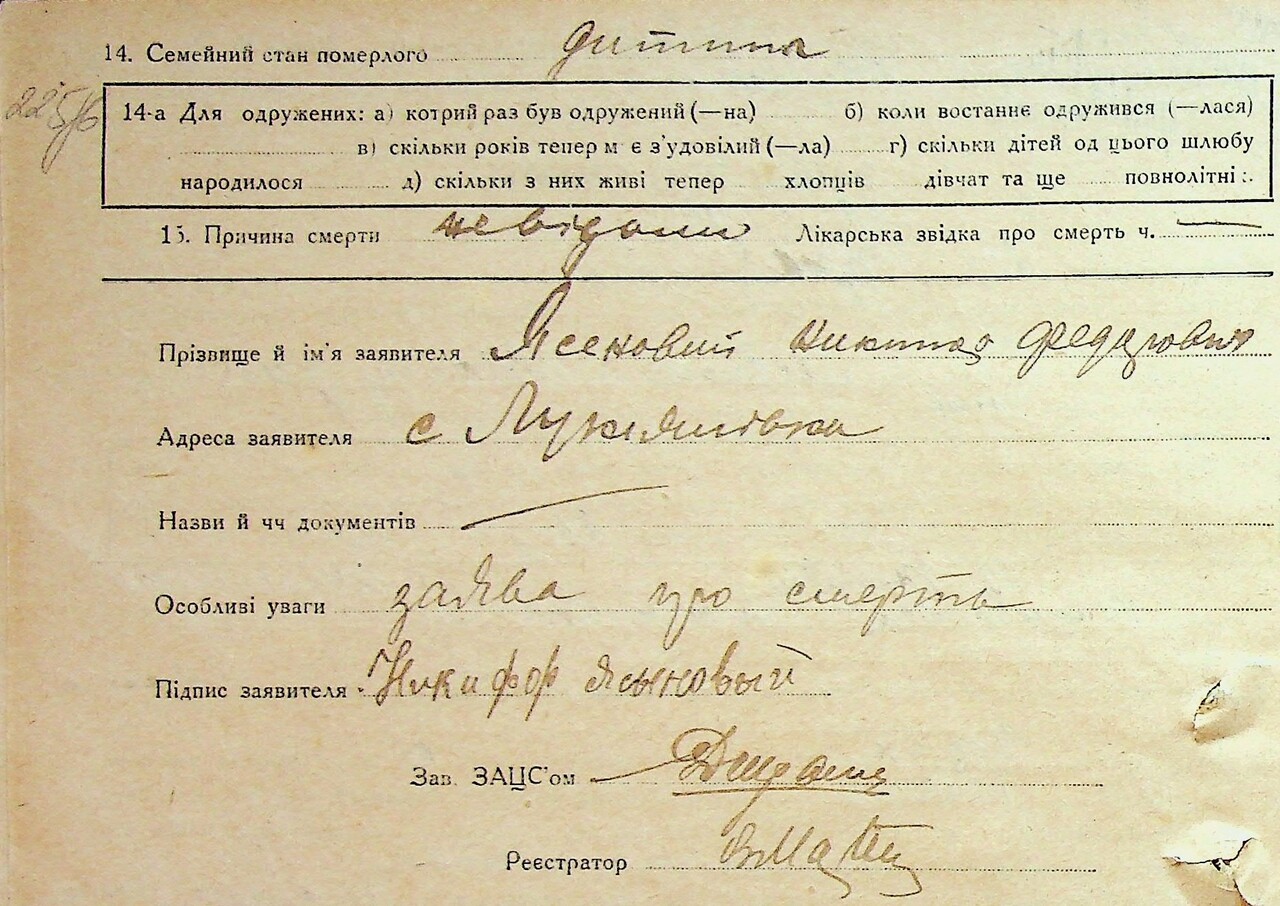 14. Семейний стан померлого дитина
14-а Для одружених: а) котрий раз був одружений (—на) б) коли востаннє одружився (—лася)
в) скільки років тепер м є з'удовілий (—ла) г) скільки дітей од цього шлюбу
народилося д) скільки з них живі тепер хлопців дівчат та ще повнолітні:.
15. Причина смерти невідоми Лікарська звідка про смерть ч. —
Прізвище й ім'я заявителя Ясеновий
Адреса заявителя с Лукяшівка
Назви й чч документів —
Особливі уваги заява про смерть
Підпис заявителя Никифор Ясыновый
Зав. ЗАЦС'ом
Реєстратор